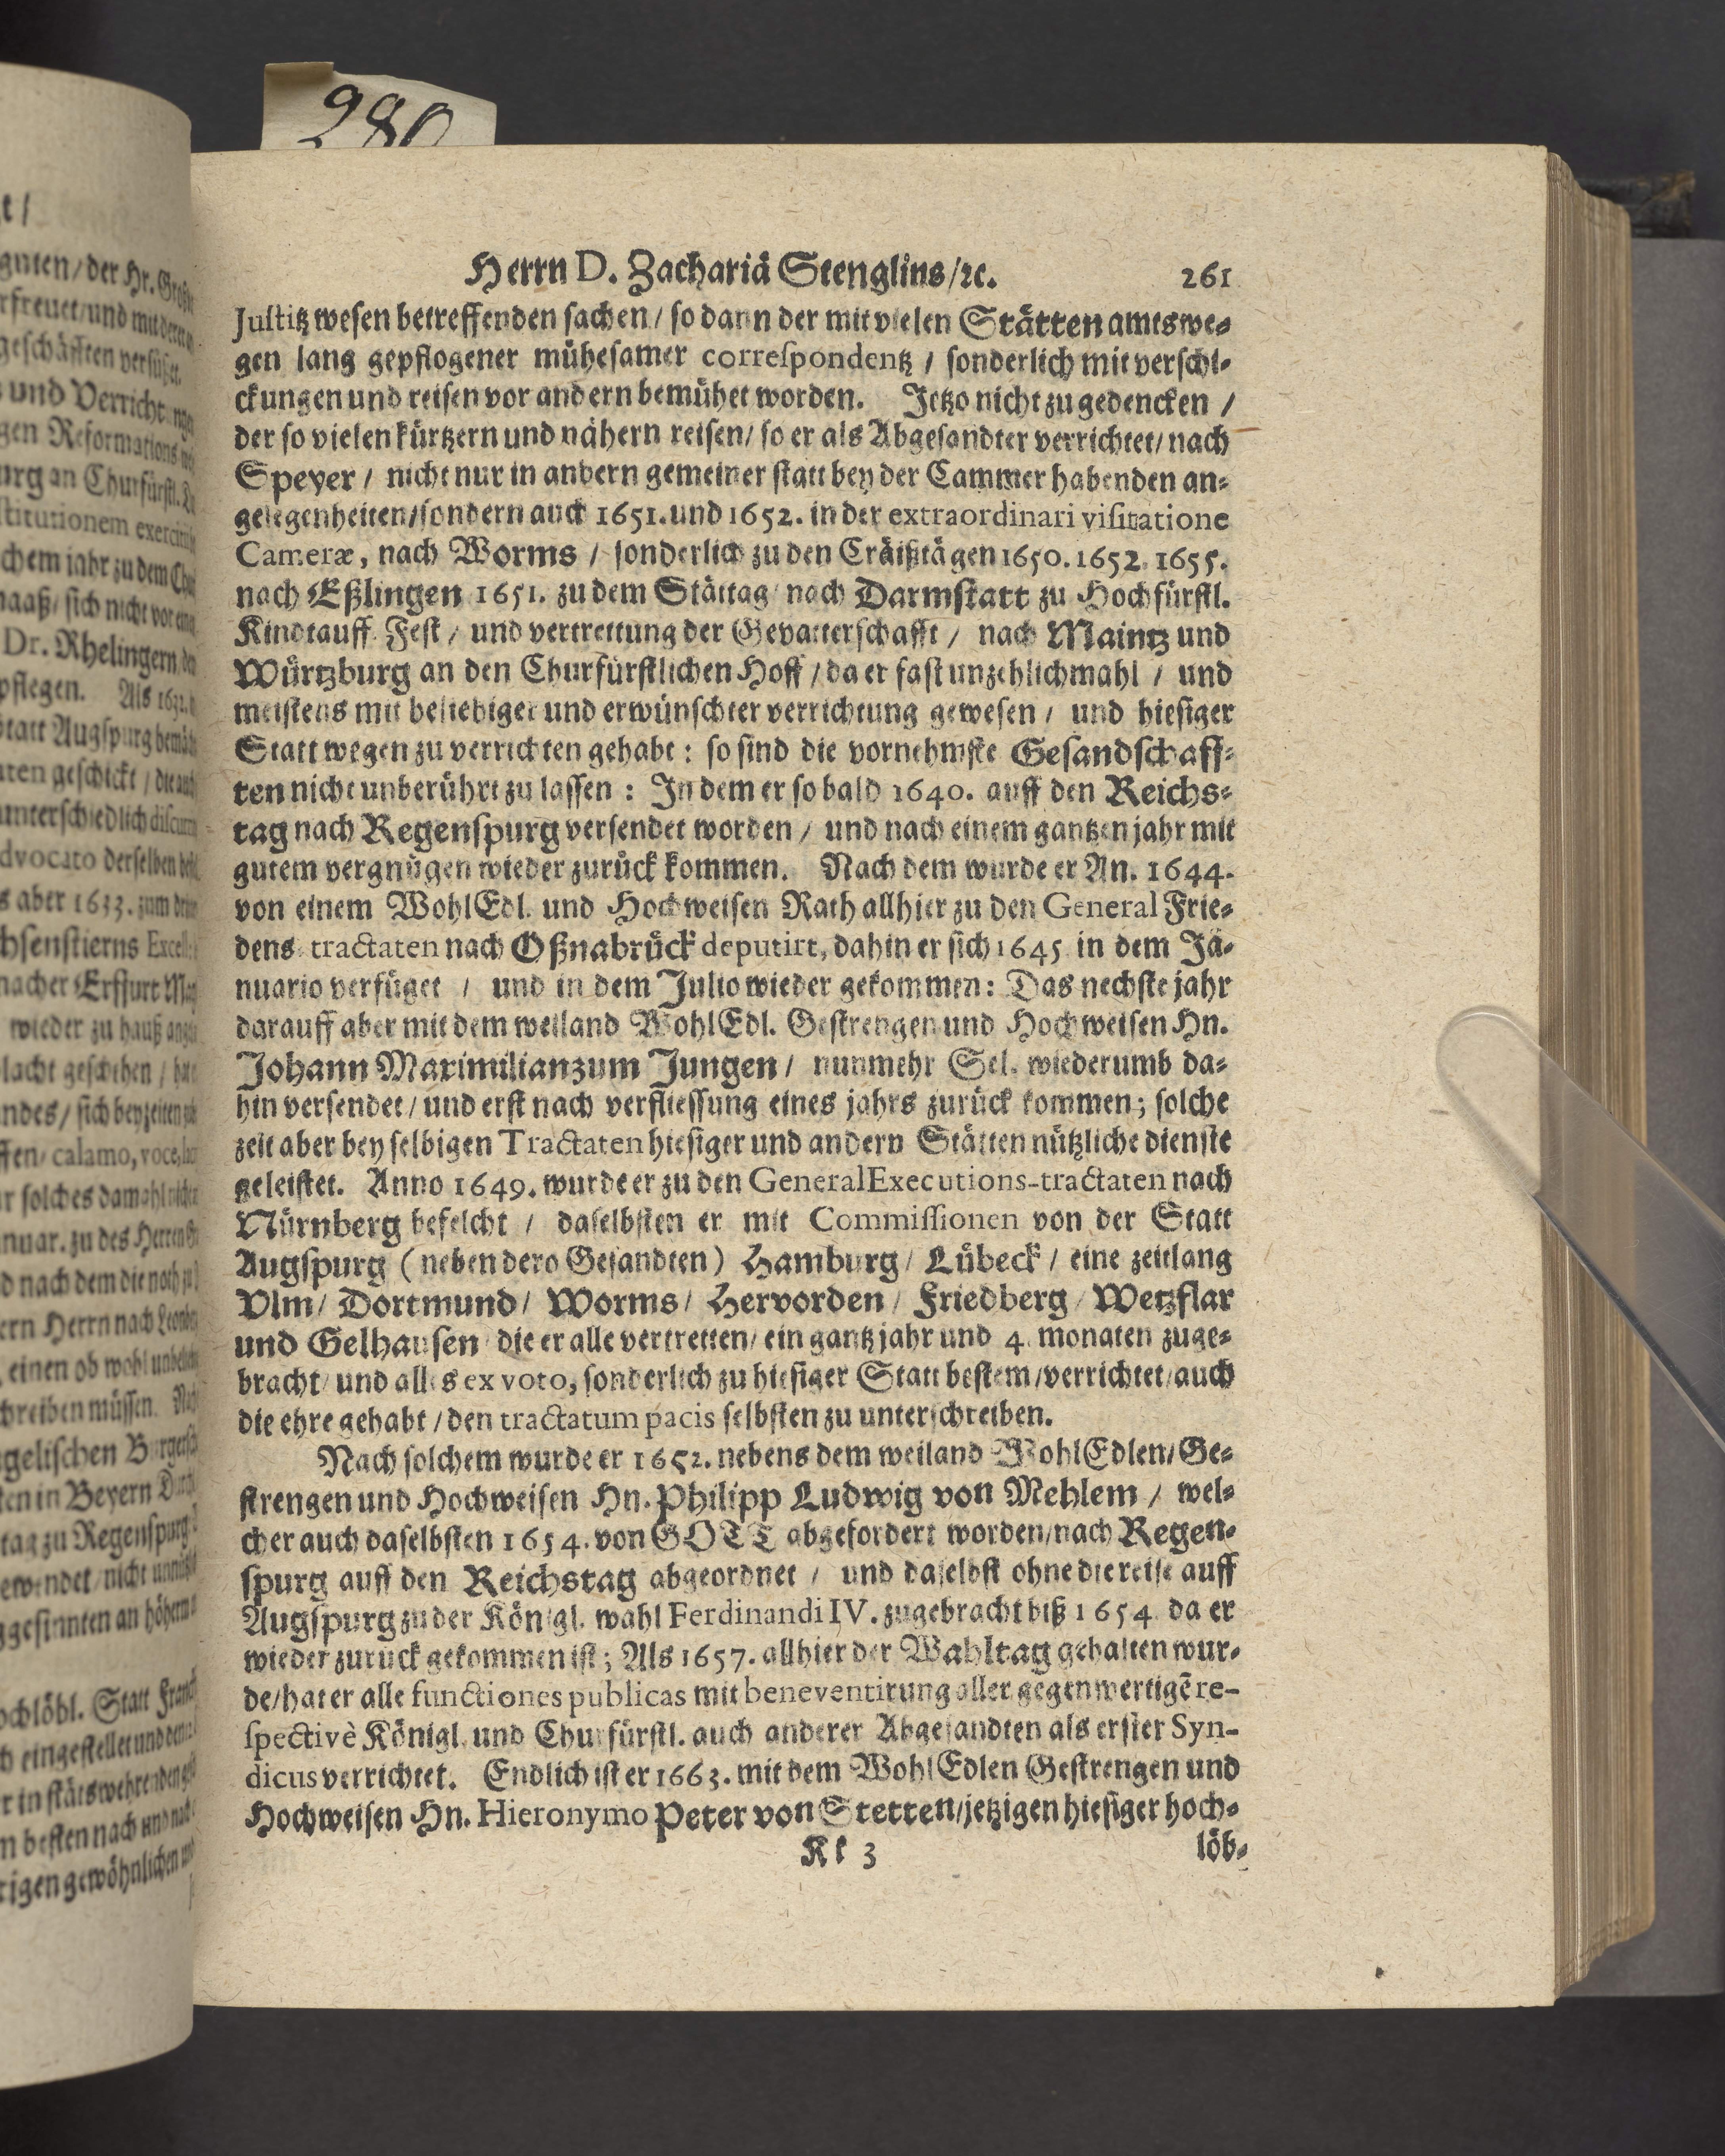 280
Herrn D. Zachariä Stenglins/ꝛc. 261
Justitz wesen betreffenden sachen / so dann der mit vielen Stätten amtswe-
gen lang gepflogener mühesamer correspondentz / sonderlich mit verschi-
ckungen und reisen vor andern bemühet worden. Jetzo nicht zu gedencken /
der so vielen kürtzern und nähern reisen / so er als Abgesandter verrichtet / nach
Speyer / nicht nur in andern gemeiner statt bey der Cammer habenden an-
gelegenheiten / sondern auch 1651. und 1652. in der extraordinari visitatione
Cameræ, nach Worms / sonderlich zu den Cräißtägen 1650. 1652. 1655.
nach Eßlingen 1651. zu dem Stättag nach Darmstatt zu Hochfürstl.
Kindtauff Fest / und vertrettung der Gevatterschafft / nach Maintz und
Würtzburg an den Churfürstlichen Hoff / da er fast unzehlichmahl / und
meistens mit beliebiger und erwünschter verrichtung gewesen / und hiesiger
Statt wegen zu verrichten gehabt : so sind die vornehmste Gesandschaff-
ten nicht unberührt zu lassen : In dem er so bald 1640. auff den Reichs-
tag nach Regenspurg versendet worden / und nach einem gantzen jahr mit
gutem vergnügen wieder zurück kommen. Nach dem wurde er An. 1644.
von einem WohlEdl. und Hochweisen Rath allhier zu den General Frie-
dens tractaten nach Oßnabrück deputirt, dahin er sich 1645 in dem Jä-
nuario verfüget / und in dem Julio wieder gekommen : Das nechste jahr
darauff aber mit dem weiland WohlEdl. Gestrengen und Hochweisen Hn.
Johann Maximilian zum Jungen / nunmehr Sel. wiederumb da-
hin versendet / und erst nach verfliessung eines jahrs zurück kommen ; solche
zeit aber bey selbigen Tractaten hiesiger und andern Stätten nützliche dienste
geleistet. Anno 1649. wurde er zu den General Executions-tractaten nach
Nürnberg befelcht / daselbsten er mit Commissionen von der Statt
Augspurg ( neben dero Gesandten ) Hamburg / Lübeck / eine zeitlang
Vlm / Dortmund / Worms / Hervorden / Friedberg / Wetzflar
und Gelhausen die er alle vertretten / ein gantz jahr und 4. monaten zuge-
bracht / und alles ex voto, sonderlich zu hiesiger Statt bestem / verrichtet / auch
die ehre gehabt / den tractatum pacis selbsten zu unterschreiben.
Nach solchem wurde er 1652. nebens dem weiland WohlEdlen / Ge-
strengen und Hochweisen Hn. Philipp Ludwig von Mehlem / wel-
cher auch daselbsten 1654. von GOTT abgefordert worden / nach Regen-
spurg auff den Reichstag abgeordnet / und daselbst ohne die reise auff
Augspurg zu der Königl. wahl Ferdinandi IV. zugebracht biß 1654. da er
wieder zurück gekommen ist ; Als 1657. allhier der Wahltag gehalten wur-
de / hat er alle functiones publicas mit beneventirung aller gegenwertigẽ re-
spectivè Königl. und Churfürstl. auch anderer Abgesandten als erster Syn-
dicus verrichtet. Endlich ist er 1663. mit dem WohlEdlen Gestrengen und
Hochweisen Hn. Hieronymo Peter von Stetten / jetzigen hiesiger hoch-
Kk 3 löb-